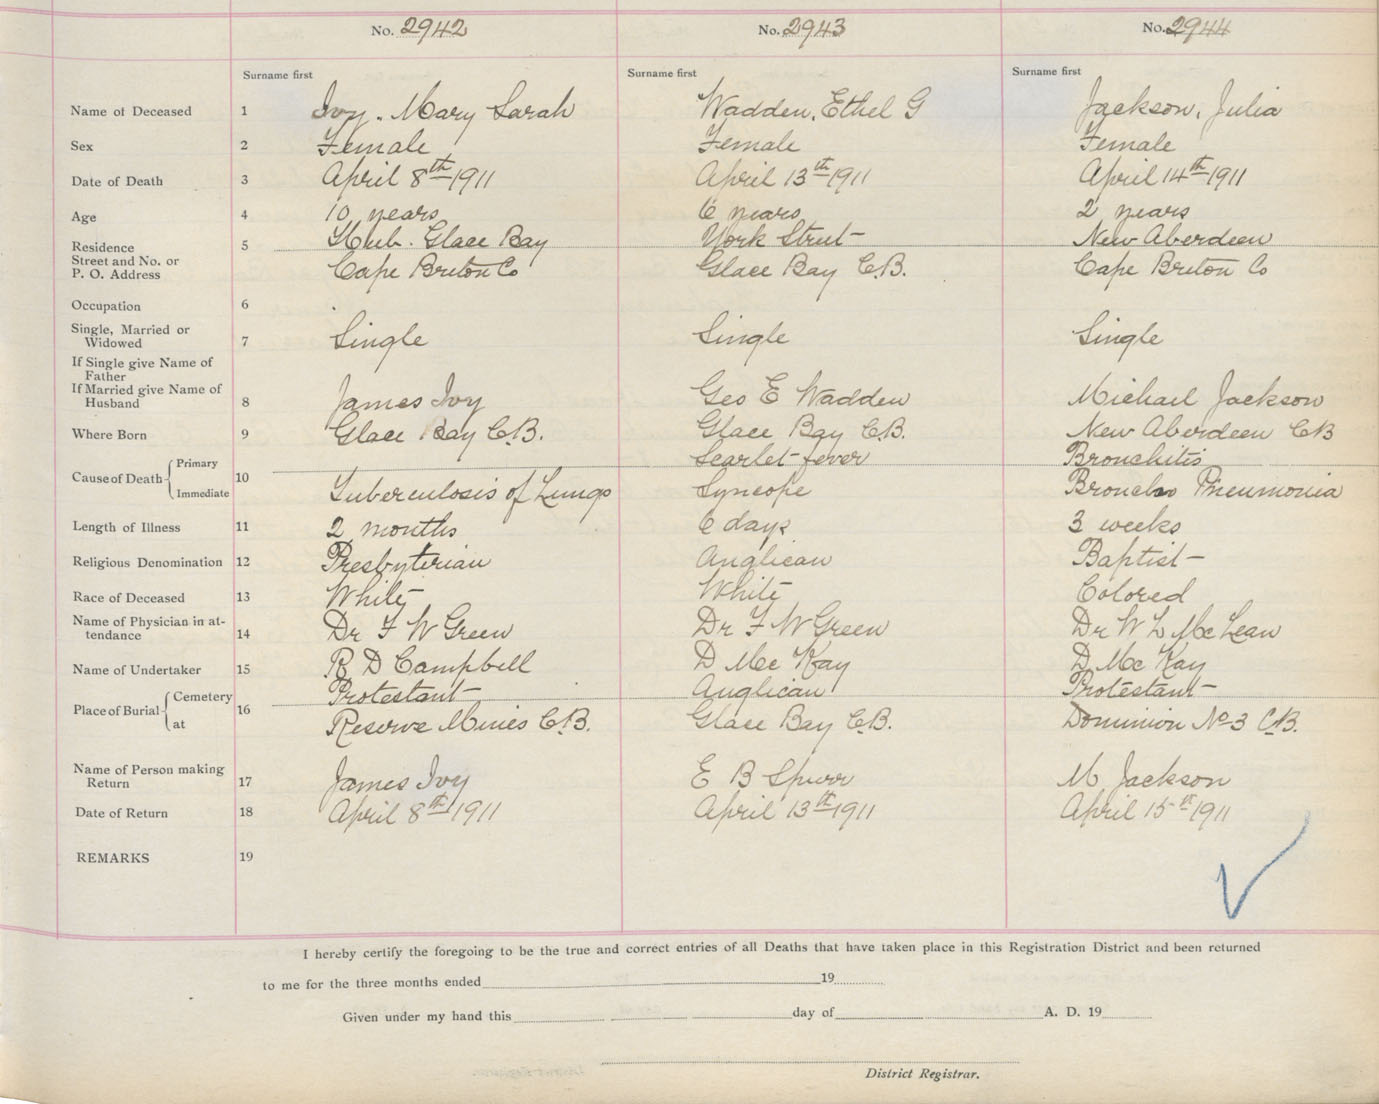 No. 2942 No. 2943 No. 2944
Surname first Surname first Surname first
Name of Deceased 1 Ivy. Mary Sarah Wadden, Ethel G Jackson, Julia
Sex 2 Female Female Female
Date of Death 3 April 8th 1911 April 13th 1911 April 14th 1911
Age 4 10 years 6 years 2 years
Residence 5 Hub. Glace Bay York Street New Aberdeen
Street and No. or
P. O. Address Cape Breton Co Glace Bay C.B. Cape Breton Co
Occupation 6
Single, Married or
Widowed 7 Single Single Single
If Single give Name of
Father
If Married give Name of
Husband 8 James Ivy Geo E Wadden Michael Jackson
Where Born 9 Glace Bay C.B. Glace Bay C.B. New Aberdeen CB
Primary Scarlet fever Bronchitis
Cause of Death 10
Immediate Tuberculosis of Lungs Syncope Broncho Pneumonia
Length of Illness 11 2 months 6 days 3 weeks
Religious Denomination 12 Presbyterian Anglican Baptist
Race of Deceased 13 White White Colored
Name of Physician in at-
tendance 14 Dr F W Green Dr F W Green Dr W L McLean
Name of Undertaker 15 R D Campbell D McKay D McKay
Cemetery Protestant Anglican Protestant
Place of Burial 16
at Reserve Mines C.B. Glace Bay C.B. Dominion No 3 C.B.
Name of Person making
Return 17 James Ivy E B Spurr M Jackson
Date of Return 18 April 8th 1911 April 13th 1911 April 15th 1911
REMARKS 19
I hereby certify the foregoing to be the true and correct entries of all Deaths that have taken place in this Registration District and been returned
to me for the three months ended 19
Given under my hand this day of A. D. 19
District Registrar.